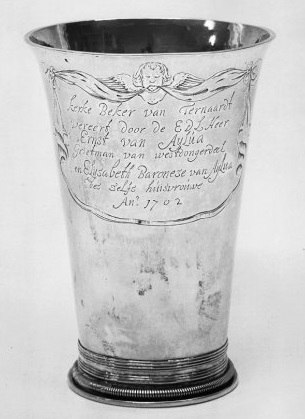 Kerke Beker van Ternaardt
vereert door de Ed.L. Heer
Ernst van Aylua
Grietman van westdongerdeel
en Elysabeth Baronese van Aylua
des zelfs huisvrouwe
An.º 1702